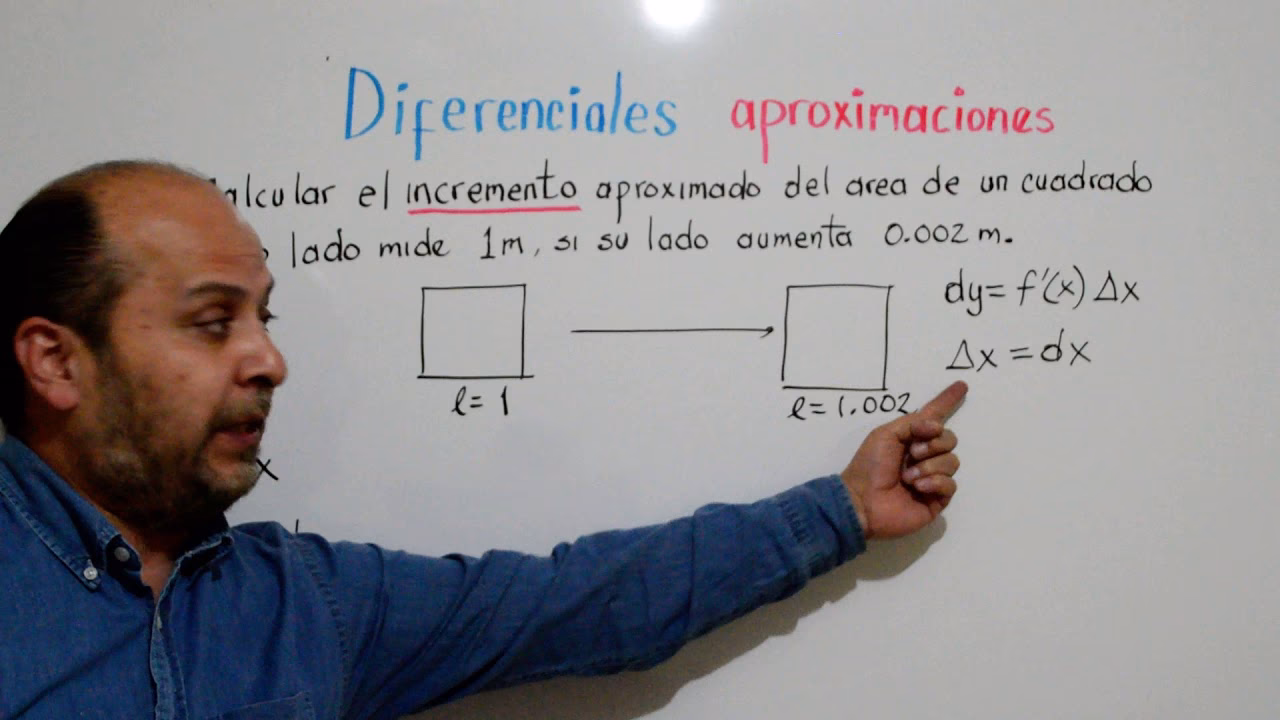 Diferenciales aproximaciones
alcular el incremento aproximado del area de un cuadrado
lado mide 1m, si su lado aumenta 0.002 m.
dy= f'(x) Δx
Δx = dx
l= 1
l= 1.002
x